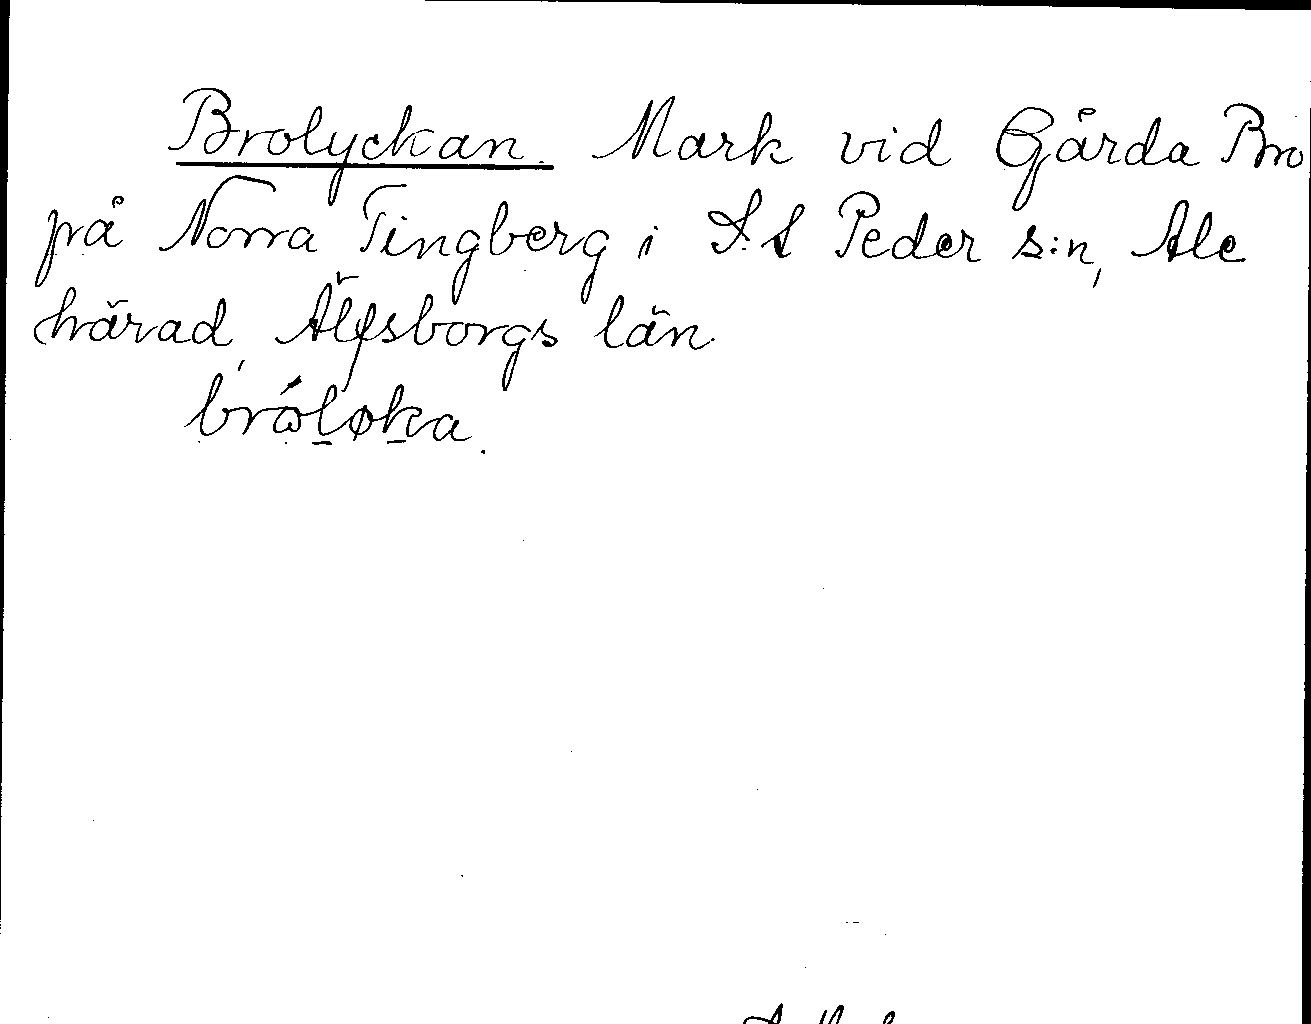 Brolyckan. Mark vid Gårda Bro
på Norra Tingberg i S:t Peder s:n, Ale
härad, Älfsborgs län.
bróløka.